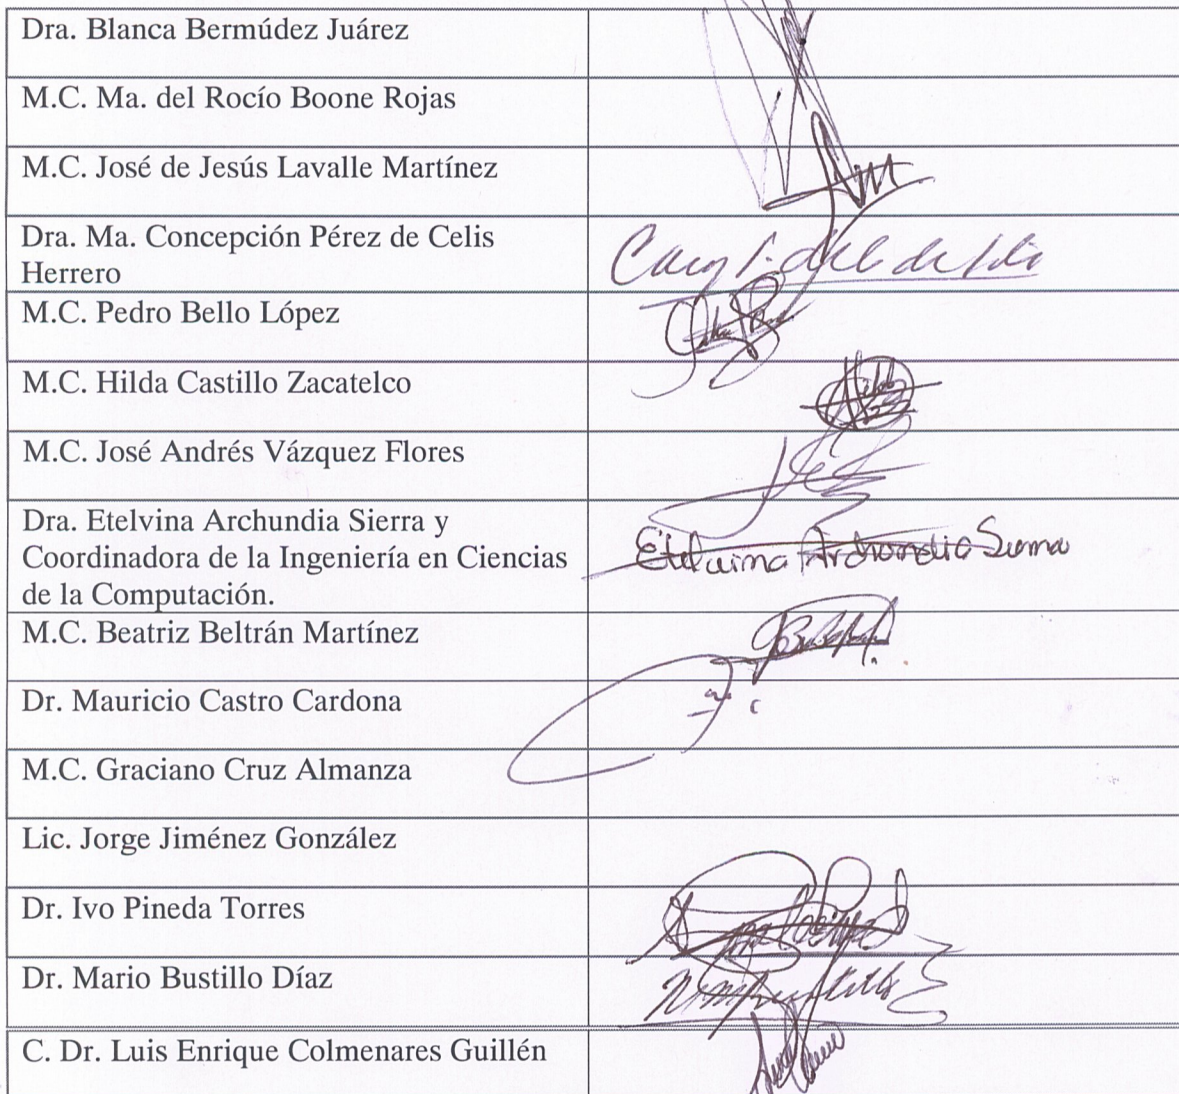 Dra. Blanca Bermúdez Juárez
M.C. Ma. del Rocío Boone Rojas
M.C. José de Jesús Lavalle Martínez
Dra. Ma. Concepción Pérez de Celis
Herrero
M.C. Pedro Bello López
M.C. Hilda Castillo Zacatelco
M.C. José Andrés Vázquez Flores
Dra. Etelvina Archundia Sierra y
Coordinadora de la Ingeniería en Ciencias
de la Computación.
Etelvina Archundia Sierra
M.C. Beatriz Beltrán Martínez
Dr. Mauricio Castro Cardona
M.C. Graciano Cruz Almanza
Lic. Jorge Jiménez González
Dr. Ivo Pineda Torres
Dr. Mario Bustillo Díaz
C. Dr. Luis Enrique Colmenares Guillén